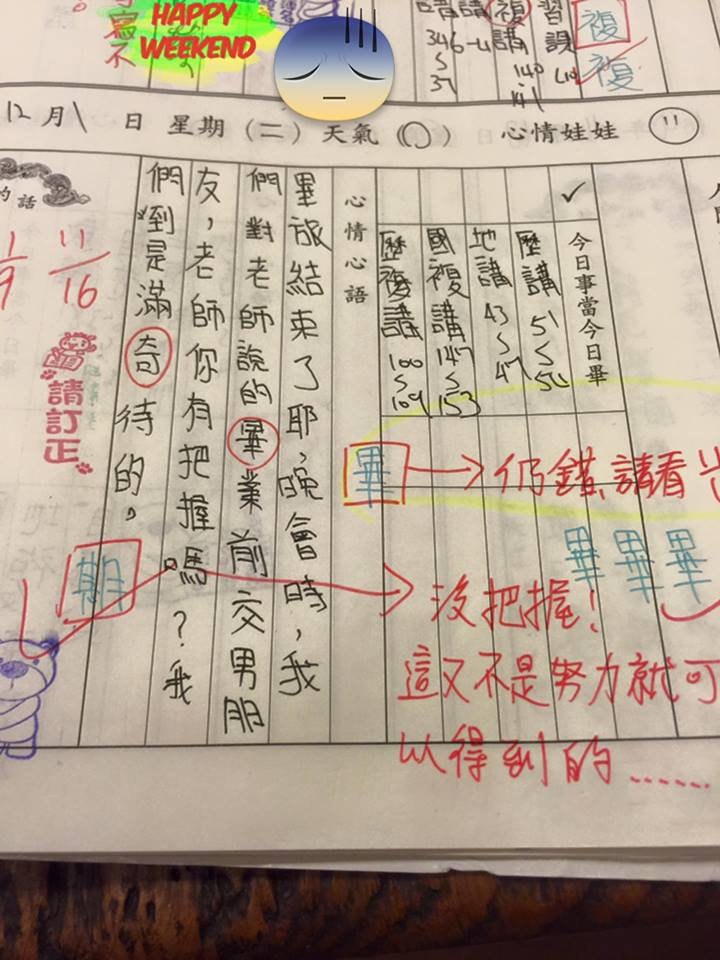 HAPPY
WEEKEND
複
複
習
課
複
講
140
141
講
346
37
12月1日 星期(二) 天氣( ) 心情娃娃
✓
今日事當今日畢
歷講 51~56
地講 43~47
國複講 147~153
歷複講 100~109
心情心語
畢旅結束了耶，晚會時，我
們對老師說的畢業前交男朋
友，老師你有把握嗎？我
們到是滿奇待的。
的話
11/16
請訂正
期
畢
仍錯,請看
畢 畢 畢
沒把握!
這又不是努力就可
以得到的……